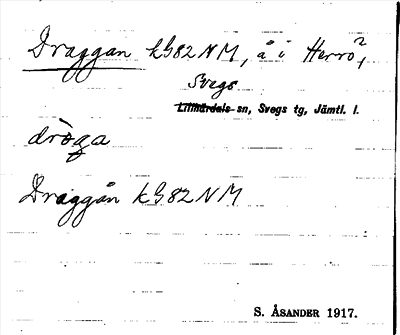 Draggan kG82NM, å i Herrö?,
Svegs
Lillhärdals sn, Svegs tg, Jämtl. l.
dròga
Draggån kG82NM
S. ÅSANDER 1917.